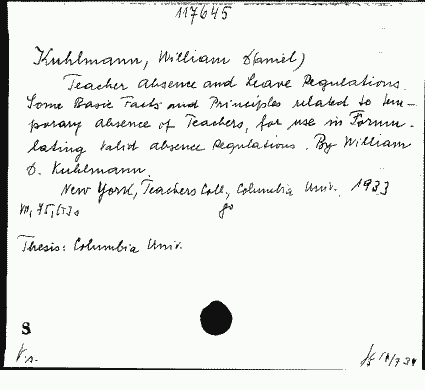 117645
Kuhlmann, William D(aniel)
Teacher Absence and Leave Regulations.
Some Basic Facts and Principles related to tem-
porary absence of Teachers, for use in Formu-
lating valid absence Regulations. By William
D. Kuhlmann.
New York, Teachers Coll., Columbia Univ. 1933
VII, 75, [5] s
Thesis: Columbia Univ.
S